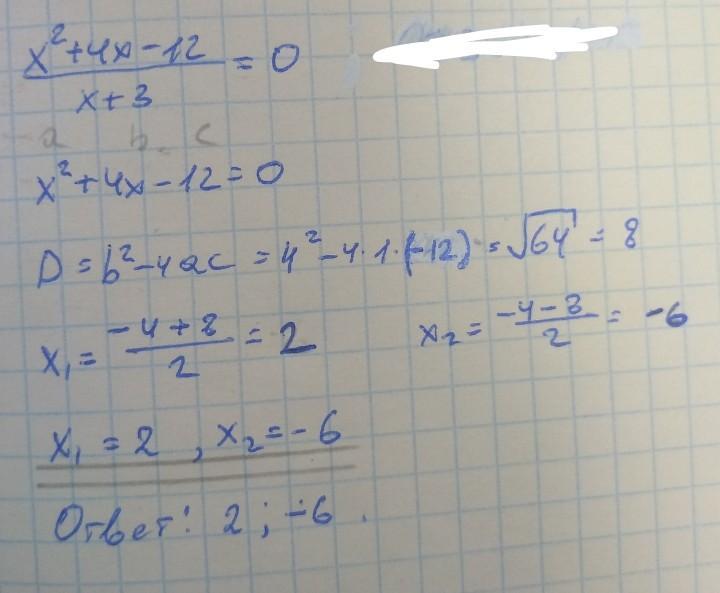 x²+4x-12 / x+3 = 0
a b c
x²+4x-12=0
D = b²-4ac = 4²-4·1·(-12) = √64 = 8
x₁ = -4+8 / 2 = 2 x₂ = -4-8 / 2 = -6
x₁ = 2 , x₂ = -6
Ответ: 2 ; -6 .